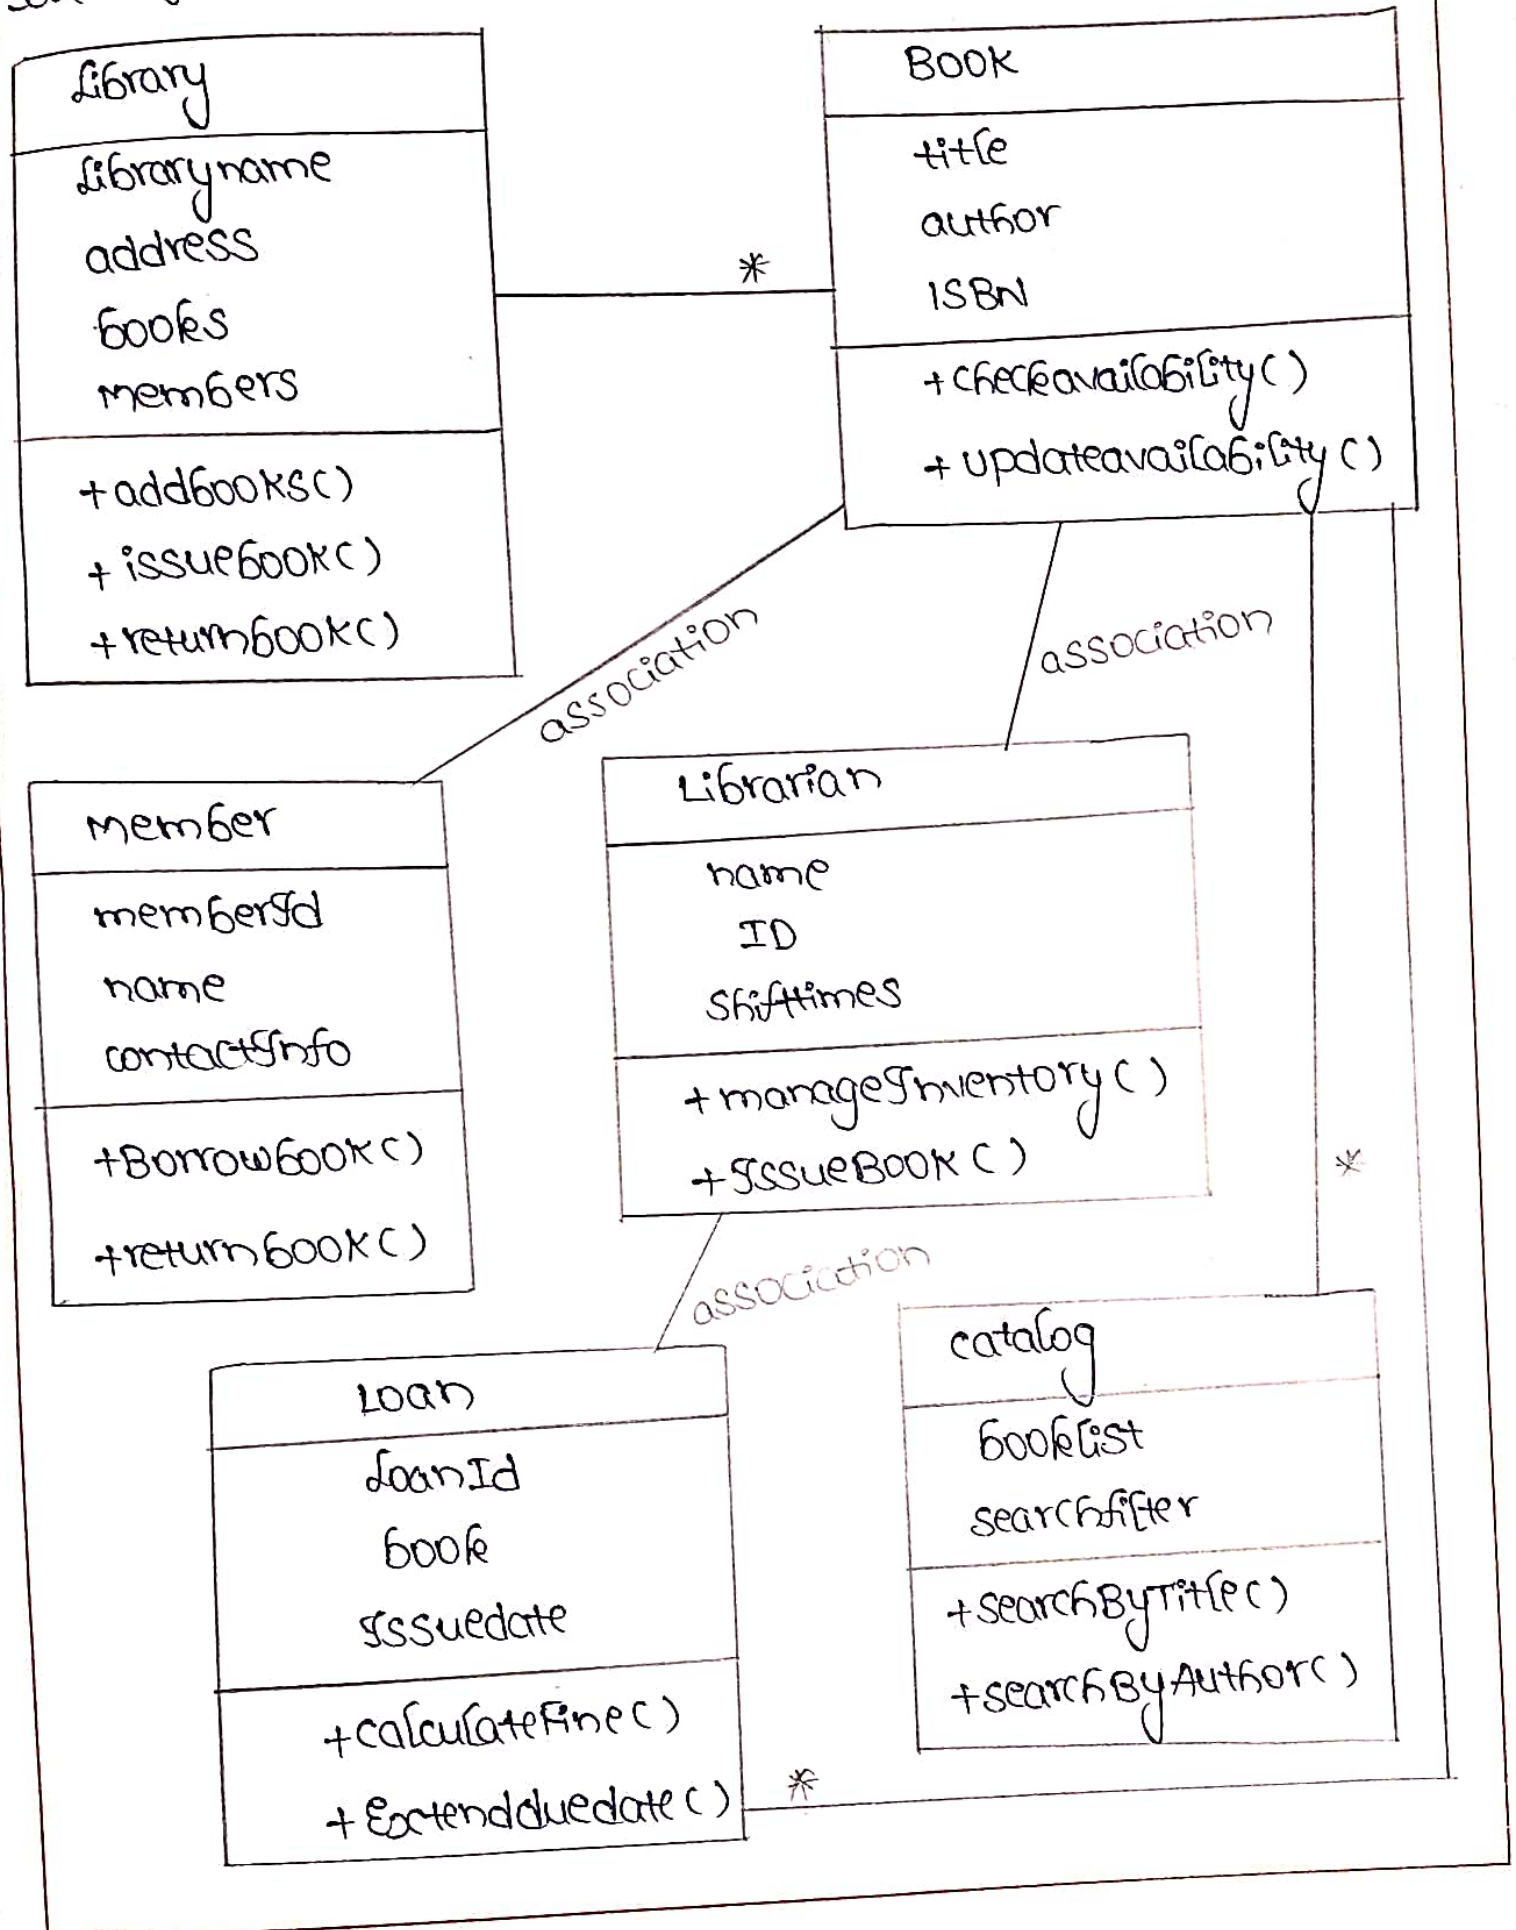 Library
Libraryname
address
books
members
+addbooks()
+issuebook()
+returnbook()
*
BOOK
title
author
ISBN
+checkavailability()
+updateavailability()
association
association
Member
memberId
name
contactInfo
+Borrowbook()
+returnbook()
Librarian
name
ID
Shifttimes
+manageInventory()
+IssueBook()
*
association
Loan
LoanId
book
Issuedate
+calculateFine()
+Extendduedate()
*
catalog
booklist
searchfilter
+searchByTitle()
+searchByAuthor()